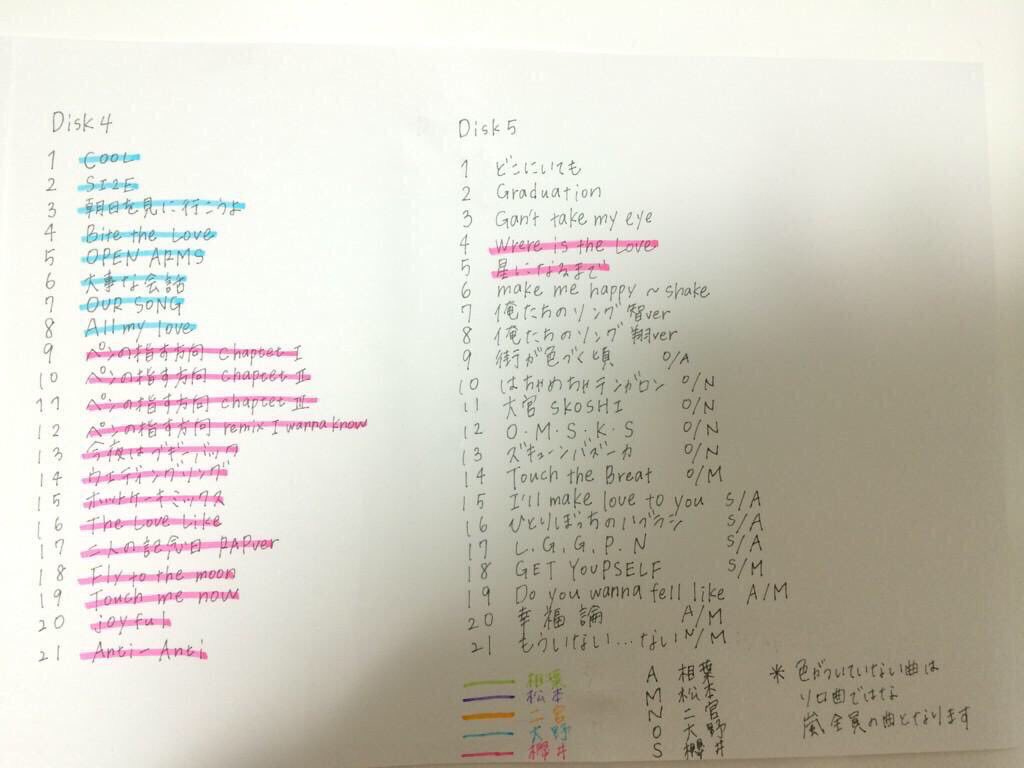 Disk4
1 COOL
2 SIZE
3 朝日を見に行こうよ
4 Bite the Love
5 OPEN ARMS
6 大事な会話
7 OUR SONG
8 All my love
9 ペンの指す方向 Chaptet I
10 ペンの指す方向 chaptet II
11 ペンの指す方向 chaptet III
12 ペンの指す方向 remix I wanna know
13 今夜はブギーバック
14 ウエディングソング
15 ホットケーキミックス
16 The Love Like
17 二人の記念日 RAPver
18 Fly to the moon
19 Touch me now
20 joyful
21 Anti-Anti
Disk5
1 どこにいても
2 Graduation
3 Gan't take my eye
4 Wrere is the Love
5 星になるまで
6 make me happy ~ shake
7 俺たちのソング 智ver
8 俺たちのソング 翔ver
9 街が色づく頃 O/A
10 はちゃめちゃテンガロン O/N
11 大宮 SKOSHI O/N
12 O.M.S.K.S O/N
13 ズキューンバズーカ O/N
14 Touch the Breat O/M
15 I'll make love to you S/A
16 ひとりぼっちのハブラシ S/A
17 L.G.G.P.N S/A
18 GET YOUPSELF S/M
19 Do you wanna fell like A/M
20 幸福論 A/M
21 もういない...ない N/M
相葉 A 相葉
松本 M 松本
二宮 N 二宮
大野 O 大野
櫻井 S 櫻井
※ 色がついていない曲は
ソロ曲ではな
嵐全員の曲となります